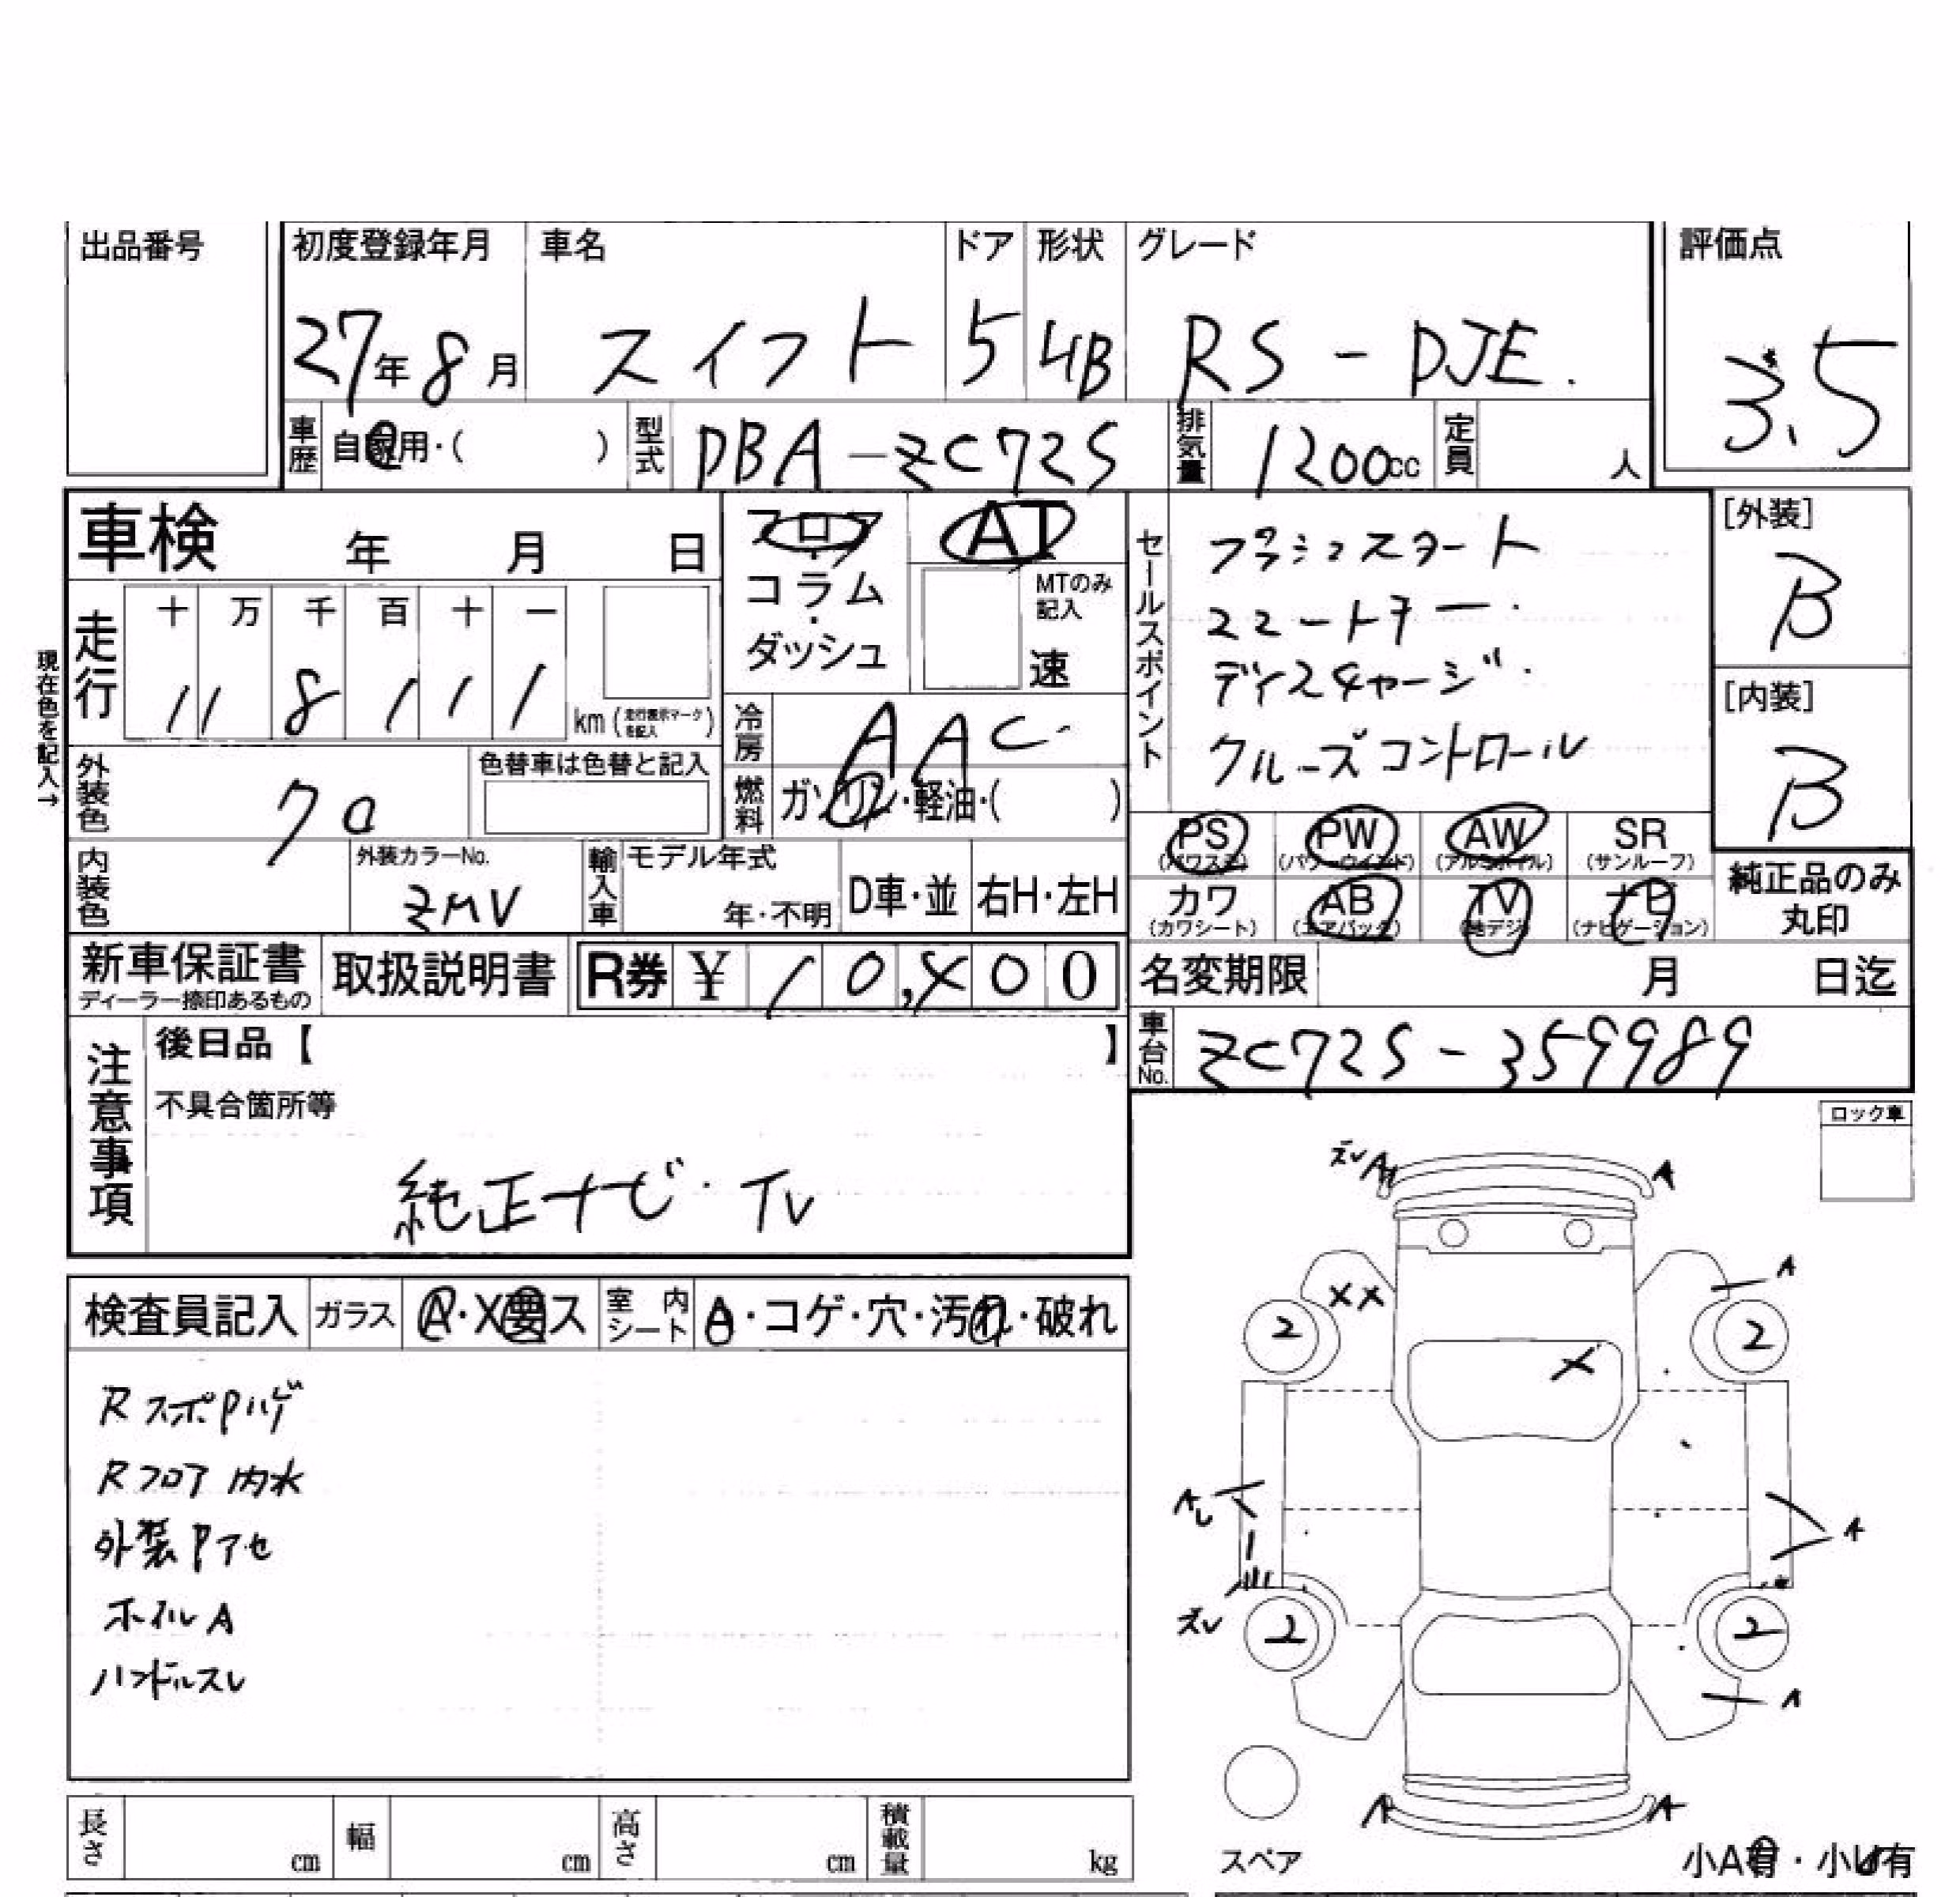 出品番号 初度登録年月 車名 ドア 形状 グレード 評価点
27年8月 スイフト 5 HB RS-DJE. 3.5
車歴 自家用・( ) 型式 DBA-ZC72S 排気量 1200cc 定員 人
車検 年 月 日
フロア・コラム・ダッシュ
AT
MTのみ記入
速
セールスポイント
プッシュスタート
スマートキー.
ディスチャージ.
クルーズコントロール
[外装]
B
[内装]
B
現在色を記入→
走行 十 万 千 百 十 一
11 8 1 1 1 km (走行表示マークを記入)
冷房 AAC
燃料 ガソリン・軽油・( )
外装色 クロ 色替車は色替と記入
内装色 外装カラーNo. ZMV
輸入車 モデル年式 年・不明 D車・並 右H・左H
PS (パワステ) PW (パワーウインド) AW (アルミホイル) SR (サンルーフ)
カワ (カワシート) AB (エアバック) TV (地デジ) ナビ (ナビゲーション)
純正品のみ丸印
新車保証書 ディーラー捺印あるもの 取扱説明書 R券 ¥ 10, 00
名変期限 月 日迄
車台No. ZC72S-359989
注意事項
後日品【 】
不具合箇所等
純正ナビ・TV
ロック車
検査員記入 ガラス A・X要ス 室内シート A・コゲ・穴・汚れ・破れ
RスポPハゲ
Rフロア内水
外装Pアセ
ホイルA
ハンドルスレ
ズレ A A
XX A
2 2
X
A A
2 2
A
A A
スペア
小A有・小U有
長さ cm 幅 cm 高さ cm 積載量 kg